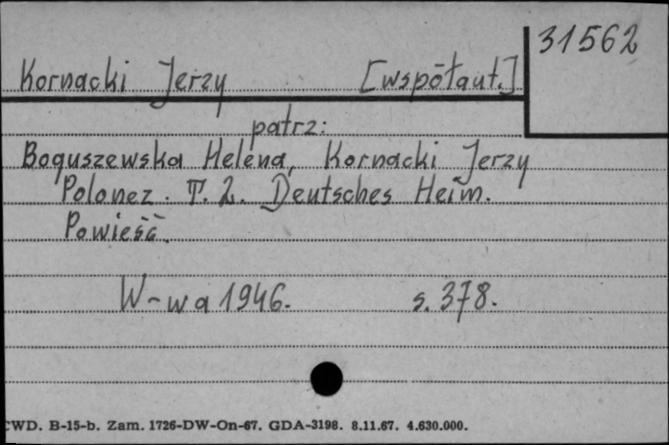 31562
Kornacki Jerzy [współaut.]
patrz:
Boguszewska Helena, Kornacki Jerzy
Polonez. T. 2. Deutsches Heim.
Powieść.
W-wa 1946. s. 378.
CWD. B-15-b. Zam. 1726-DW-On-67. GDA-3198. 8.11.67. 4.630.000.